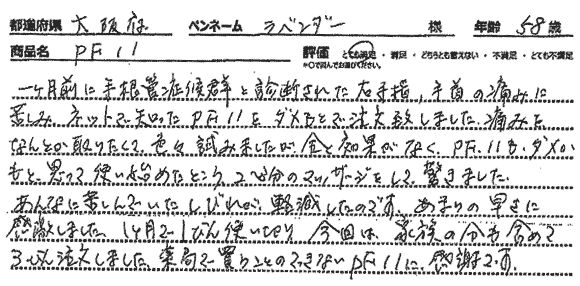 都道府県 大阪府 ペンネーム ラベンダー 様 年齢 58歳
商品名 PF11 評価 とても満足 ・ 満足 ・ どちらとも言えない ・ 不満足 ・ とても不満足
*○で囲んでお選びください。
一ヶ月前に手根管症候群と診断された右手指、手首の痛みに
苦しみ、ネットで知ったPF11をダメもとで注文致しました。痛みを
なんとか取りたくて、色々試みましたが、全く効果がなく、PF11も、ダメか
もと、思って使い始めたところ、2、3分のマッサージをして、驚きました。
あんなに苦しんでいたしびれが、軽減したのです。あまりの早さに
感激しました。1ヶ月で1びん使い切り、今回は、家族の分も含めて
3びん注文しました。薬局で買うことのできないPF11に、感謝です。